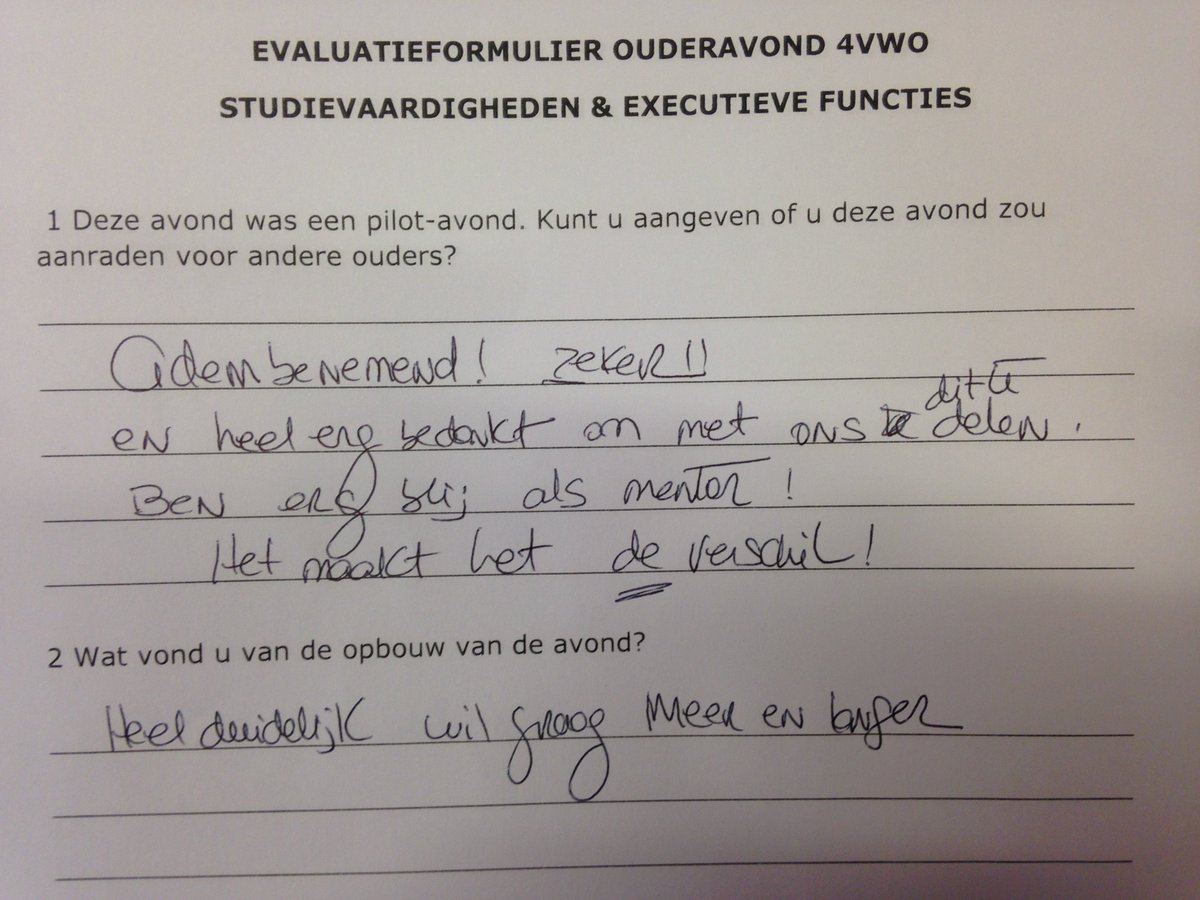 EVALUATIEFORMULIER OUDERAVOND 4VWO
STUDIEVAARDIGHEDEN & EXECUTIEVE FUNCTIES
1 Deze avond was een pilot-avond. Kunt u aangeven of u deze avond zou
aanraden voor andere ouders?
Adembenemend! zeker!!
en heel erg bedankt om met ons dit te delen.
Ben erg blij als mentor!
Het maakt het de verschil!
2 Wat vond u van de opbouw van de avond?
Heel duidelijk wil graag meer en langer